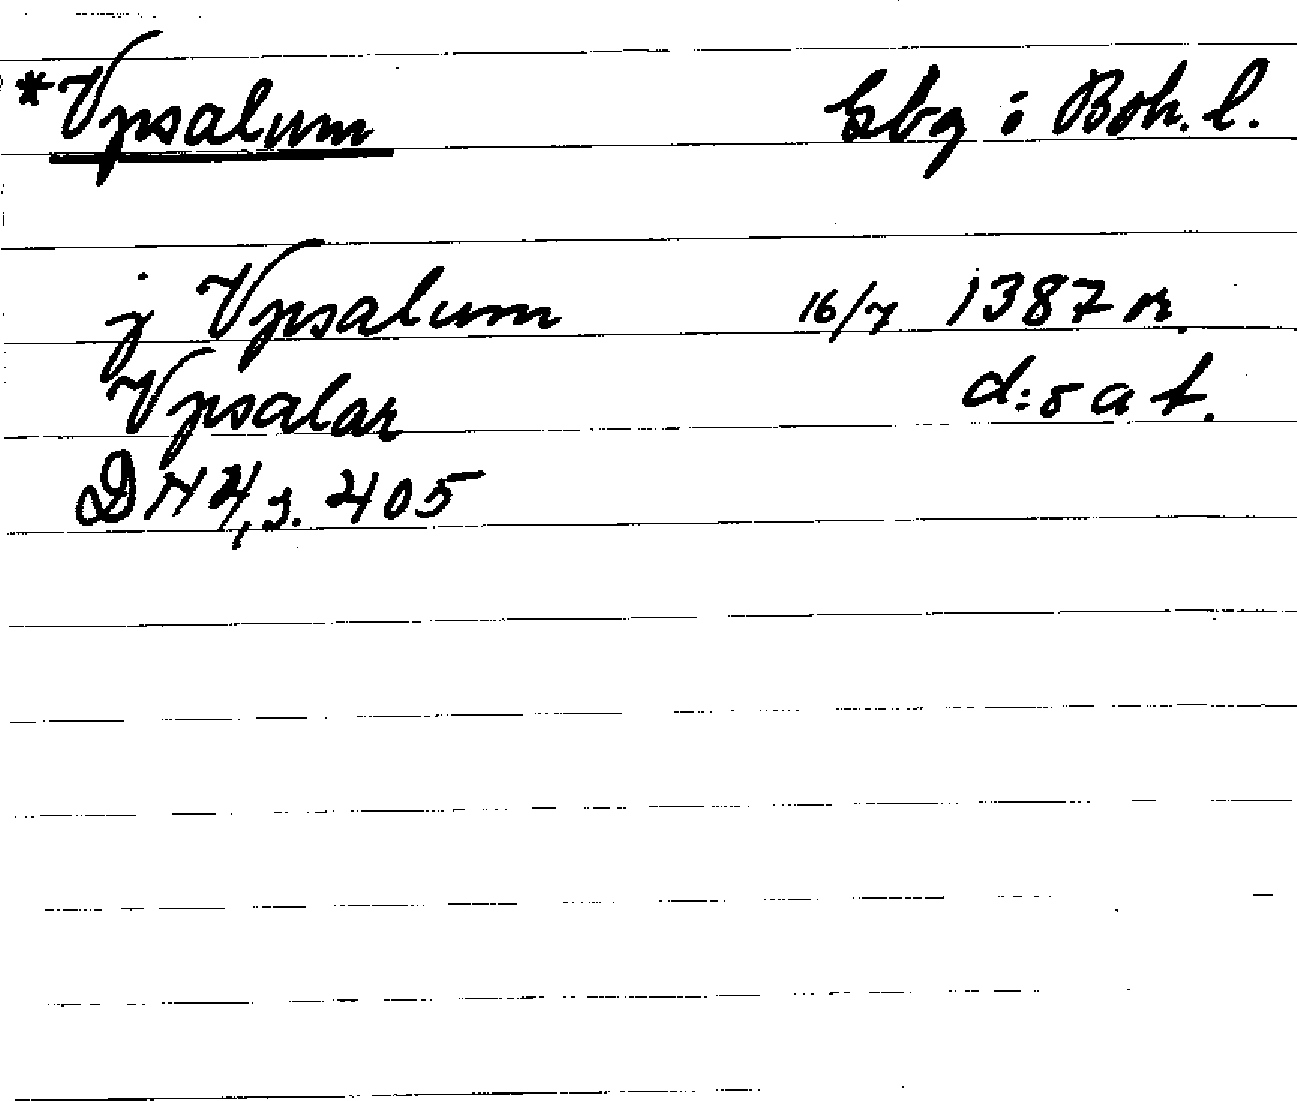 *Vpsalum Gbg i Boh. l.
j Vpsalum 16/7 1387 or.
Vpsalar d:o a f.
DN 4, s. 405